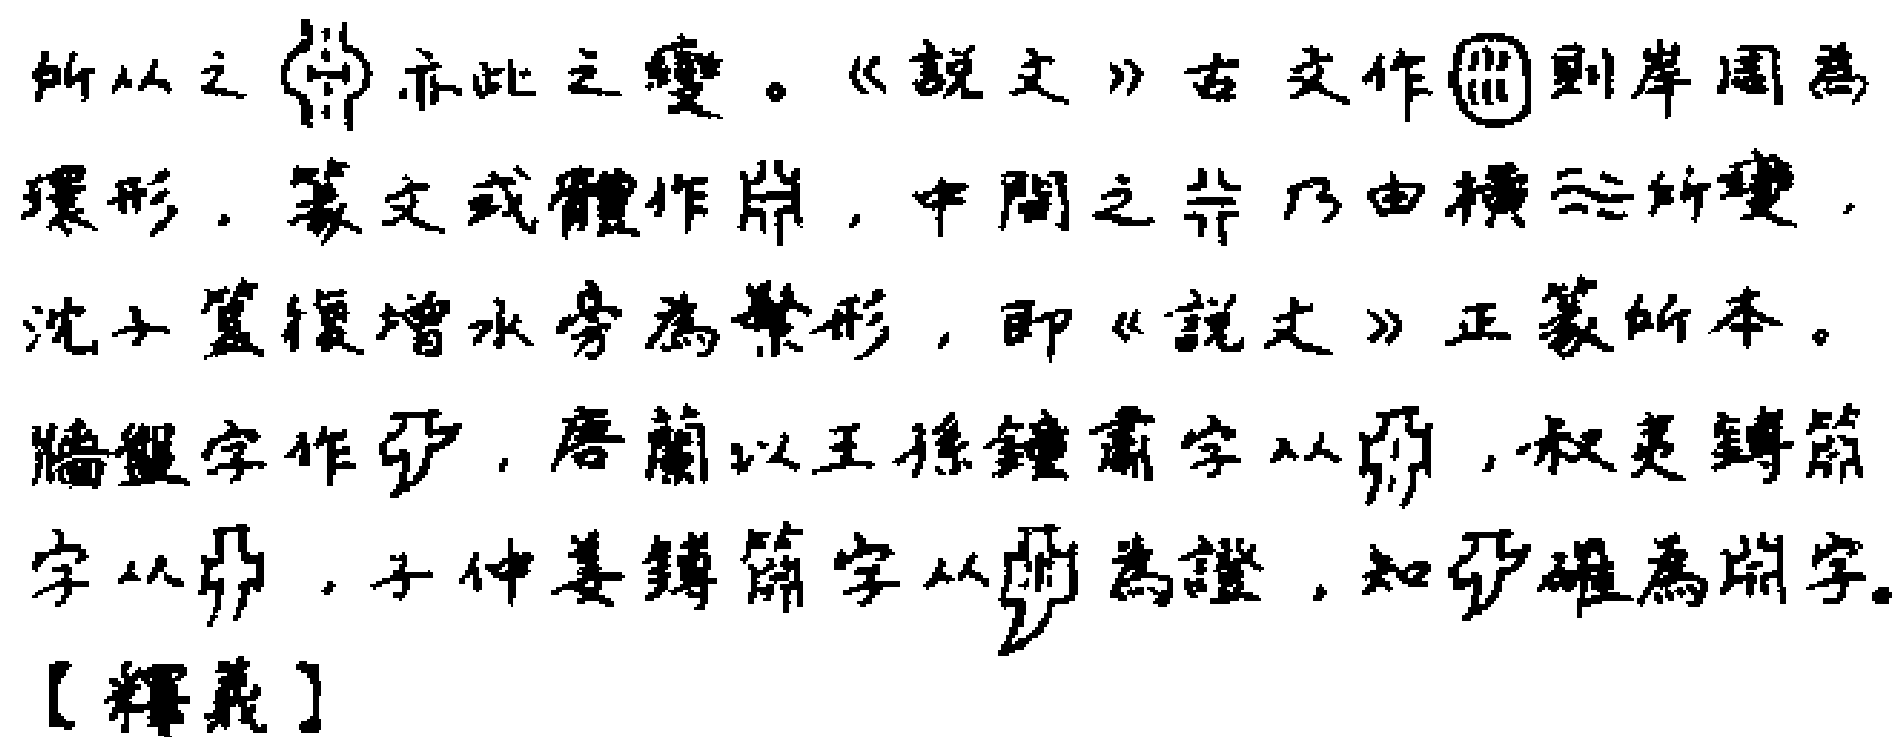 所以之亦此之變。《説文》古文作則岸周為
環形。篆文或體作𣶒，中間之乃由橫所變，
沈子簋復增水旁為繁形，即《説文》正篆所本。
牆盤字作，唐蘭以王孫鐘肅字从，叔夷鎛簫
字从，子仲姜鎛簫字从為證，知確為𣶒字。
【釋義】